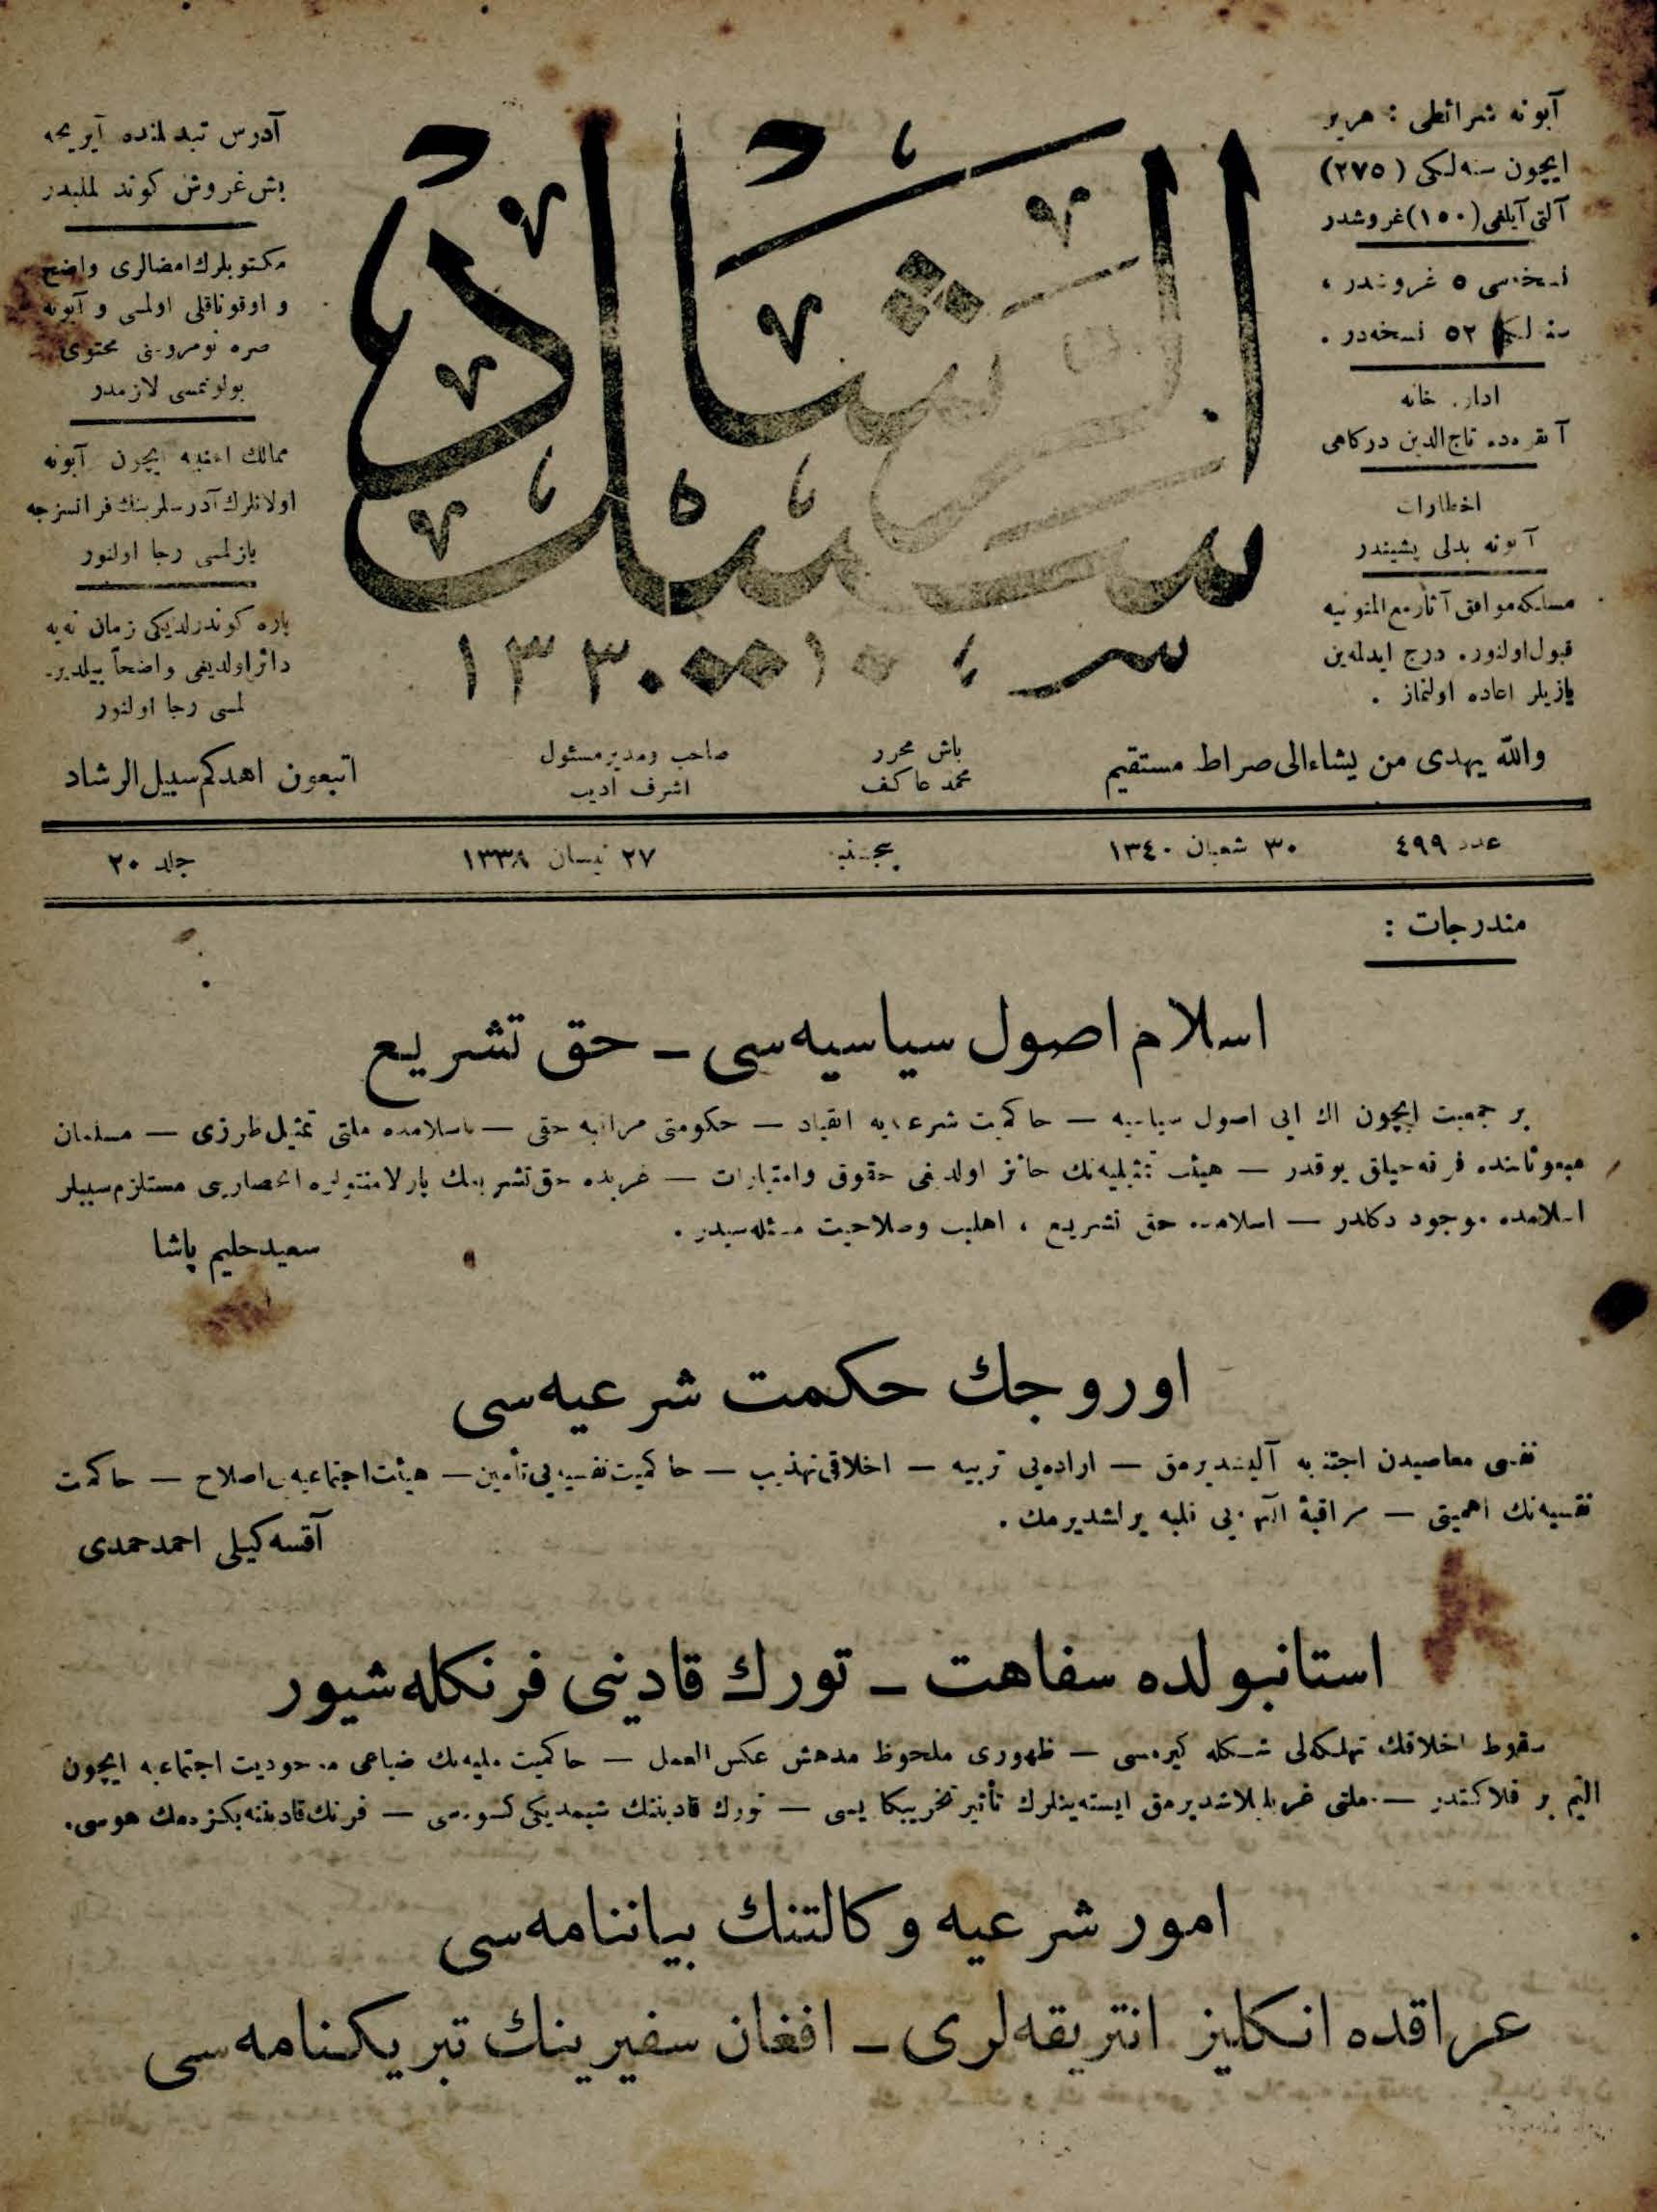 آبونه شرائطی : هر یر
ایچون سنه‌لکی (٢٧٥)
آلتی آیلغی (١٥٠) غروشدر
نسخه‌سی ٥ غروشدر ،
سنه‌لکی ٥٢ نسخه‌در .
اداره خانه
آنقره‌ده تاج‌الدین درکاهی
اخطارات
آبونه بدلی پشیندر
مسلکه موافق آثار مع‌الممنونیه
قبول اولنور. درج ایدلمه‌ین
یازیلر اعاده اولنماز .
سبیل الرشاد
١٣٣٠
آدرس تبدیلنده آیریجه
بش غروش کوندرلملیدر
مکتوبلرك امضالری واضح
و اوقوناقلی اولمسی و آبونه
صره نومروسنی محتوی
بولونمسی لازمدر
ممالك اجنبیه ایچون آبونه
اولانلرك آدرسلرینك فرانسزجه
یازلمسی رجا اولنور
پاره کوندرلدیکی زمان نه‌یه
دائر اولدیغی واضحاً بیلدیر-
لمسی رجا اولنور
والله یهدی من یشاء الی صراط مستقیم
باش محرر
محمد عاکف
صاحب ومدیر مسئول
اشرف ادیب
اتبعون اهدکم سبیل الرشاد
عدد ٤٩٩
٣٠ شعبان ١٣٤٠
پنجشنبه
٢٧ نیسان ١٣٣٨
جلد ٢٠
مندرجات :
اسلام اصول سیاسیه‌سی ــ حق تشریع
بر جمعیت ایچون اك ایی اصول سیاسیه — حاکمیت شرعیه‌یه انقیاد — حکومتی مراقبه حقی — اسلامده ملتی تمثیل طرزی — مسلمان
مبعوثاننده فرقه‌جیلق یوقدر — هیئت تمثیلیه‌نك حائز اولدیغی حقوق وامتیازات — غربده حق تشریعك پارلامنتولره انحصارینی مستلزم سببلر
اسلامده موجود دکلدر — اسلامده حق تشریع ، اهلیت وصلاحیت مسئله‌سیدر .
سعید حلیم پاشا
اوروجك حکمت شرعیه‌سی
نفسی معاصیدن اجتنابه آلیشدیرمق — اراده‌یی تربیه — اخلاقی تهذیب — حاکمیت نفسیه‌یی تأمین — هیئت اجتماعیه‌یی اصلاح — حاکمیت
نفسیه‌نك اهمیتی — مراقبهٔ الهیه‌یی قلبه یرلشدیرمك .
آقسه‌کیلی احمد حمدی
استانبولده سفاهت ــ تورك قادینی فرنکله‌شیور
سقوط اخلاقك تهلکه‌لی شکله کیرمسی — ظهوری ملحوظ مدهش عکس العمل — حاکمیت ملیه‌نك ضیاعی موجودیت اجتماعیه ایچون
الیم بر فلاکتدر — ملتی غربلیلاشدیرمق ایسته‌ینلرك تأثیر تخریبکاریسی — تورك قادینك شیمدیکی کسوه‌سی — فرنك قادیننه بکزه‌مك هوسی.
امور شرعیه وکالتنك بیاننامه‌سی
عراقده انکلیز انتریقه‌لری ــ افغان سفیرینك تبریکنامه‌سی